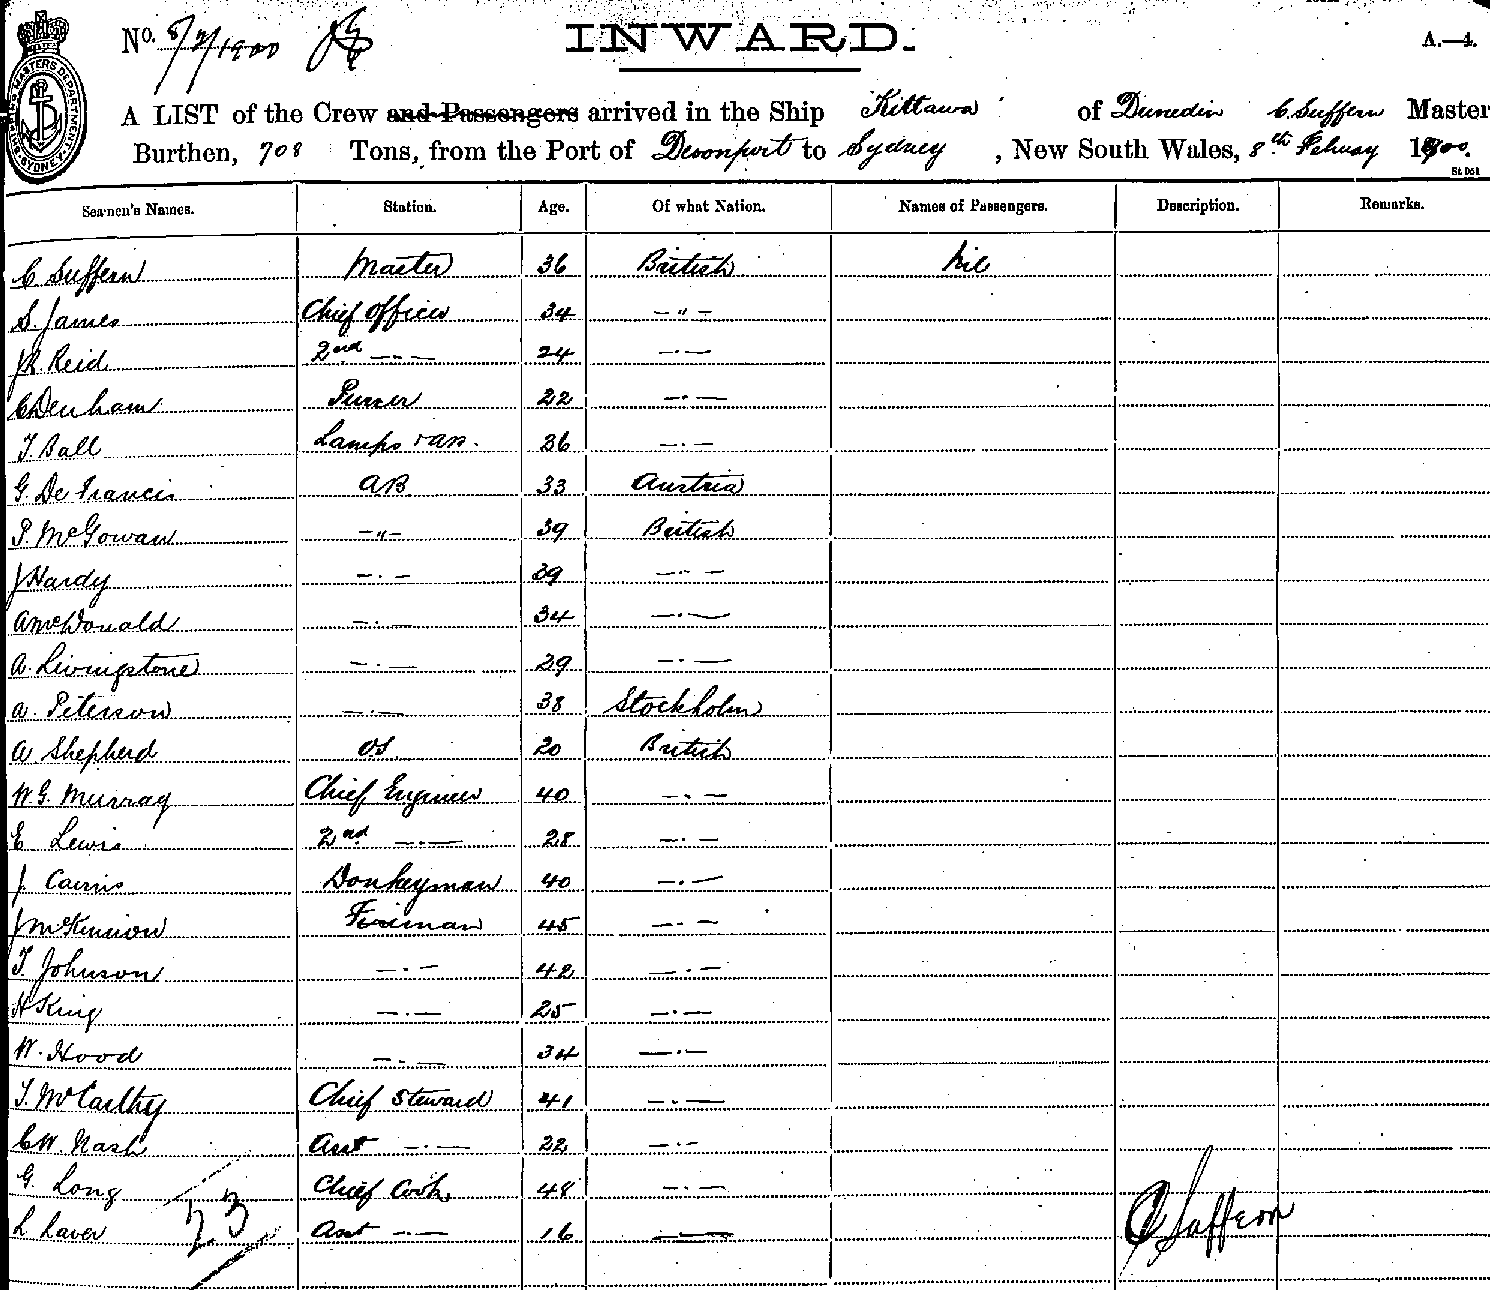 No. 8/2/1900
INWARD.
A.—4.
A LIST of the Crew and Passengers arrived in the Ship Kittawa of Dunedin C. Suffern Master
Burthen, 708 Tons, from the Port of Devonport to Sydney, New South Wales, 8th February 1900.
Seamen's Names. Station. Age. Of what Nation. Names of Passengers. Description. Remarks.
C Suffern Master 36 British Nil
S. James Chief Officer 34 — " —
J R. Reid 2nd — " — 24 — " —
C Denham Purser 22 — " —
T. Ball Lamps + AB. 36 — " —
G. De Francis AB 33 Austria
P. McGowan — " — 39 British
J Hardy — " — 39 — " —
A McDonald — " — 34 — " —
A. Livingstone — " — 29 — " —
A. Peterson — " — 38 Stockholm
A Shepherd OS. 20 British
W. G. Murray Chief Engineer 40 — " —
E Lewis 2nd — " — 28 — " —
J. Cairns Donkeyman 40 — " —
J McKinnon Fireman 45 — " —
T. Johnson — " — 42 — " —
H King — " — 25 — " —
W. Hood — " — 34 — " —
T. McCarthy Chief Steward 41 — " —
C W. Nash Asst — " — 22 — " —
G. Long Chief Cook 48 — " —
L Laver Asst — " — 16 — " —
23
C Suffern